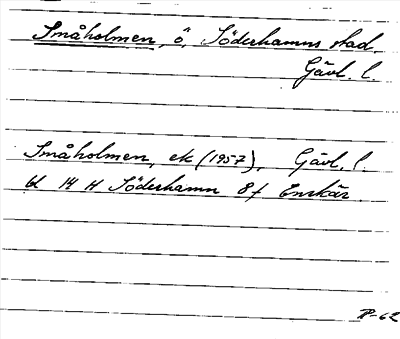 Småholmen, ö, Söderhamns stad,
Gävl. l.
Småholmen, ek (1957), Gävl. l.
bl 14 H Söderhamn 8f Enskär
P-62